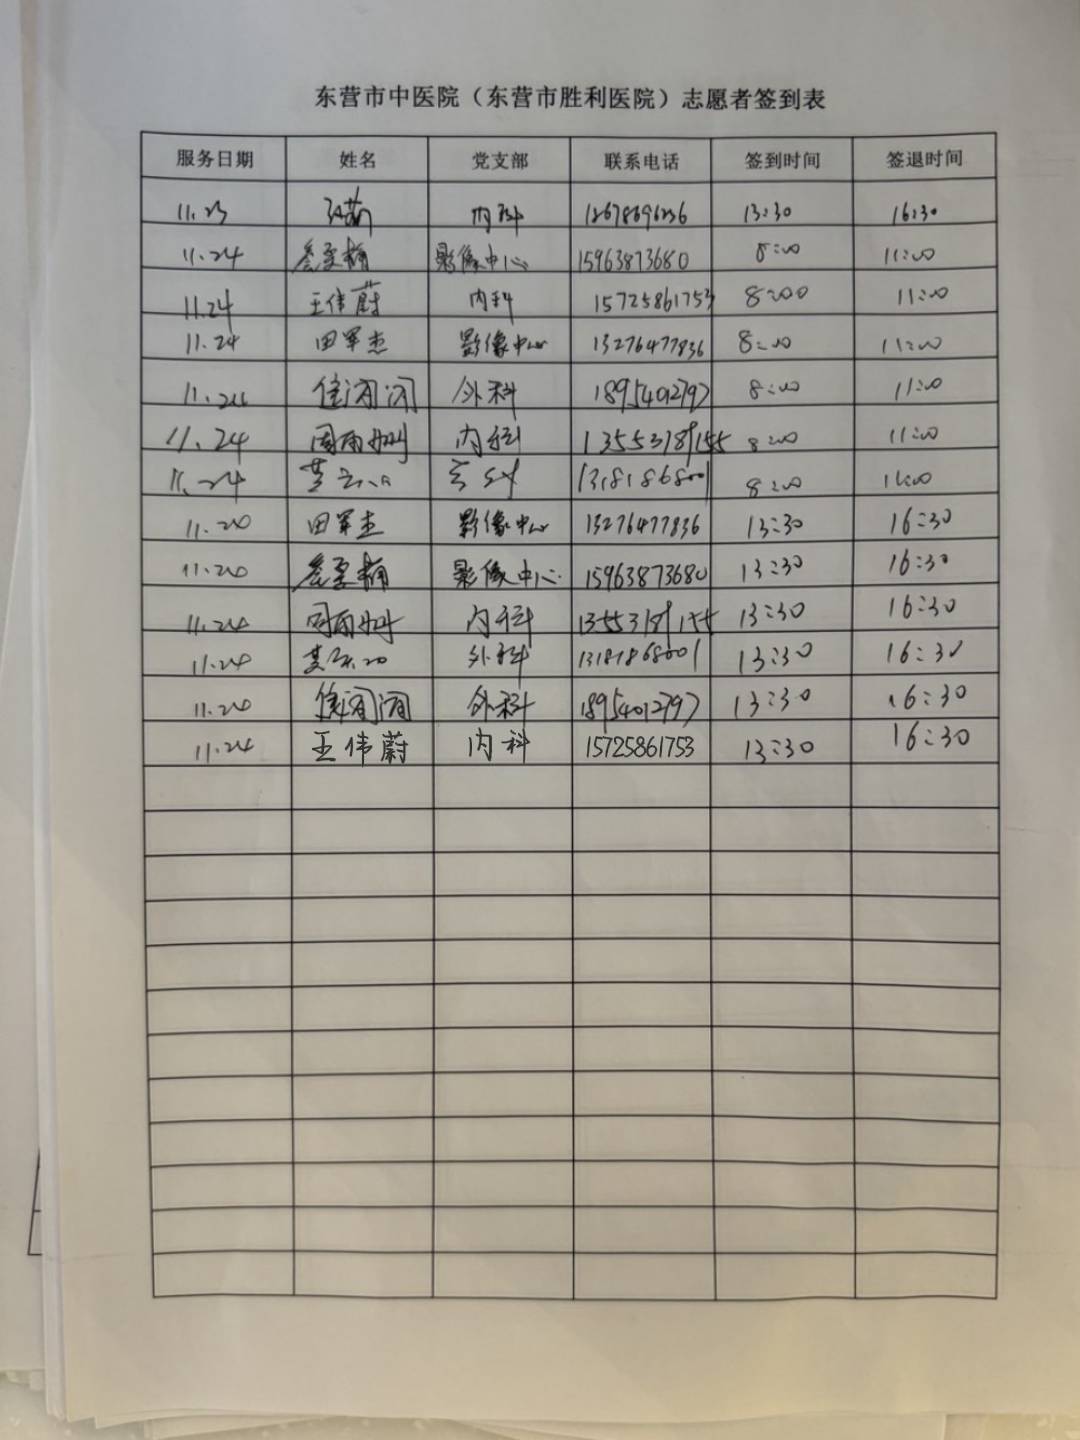 东营市中医院（东营市胜利医院）志愿者签到表
服务日期 姓名 党支部 联系电话 签到时间 签退时间
11.23 内科 13:30 16:30
11.24 影像中心 15963873680 8:00 11:00
11.24 王伟蔚 内科 15725861753 8:00 11:00
11.24 田军杰 影像中心 13276477836 8:00 11:00
11.24 外科 18954012797 8:00 11:00
11.24 周雨姗 内科 13553789155 8:00 11:00
11.24 13181868001 8:00 11:00
11.24 田军杰 影像中心 13276477836 13:30 16:30
11.24 影像中心 15963873680 13:30 16:30
11.24 周雨姗 内科 13553789155 13:30 16:30
11.24 外科 13181868001 13:30 16:30
11.24 外科 18954012797 13:30 16:30
11.24 王伟蔚 内科 15725861753 13:30 16:30